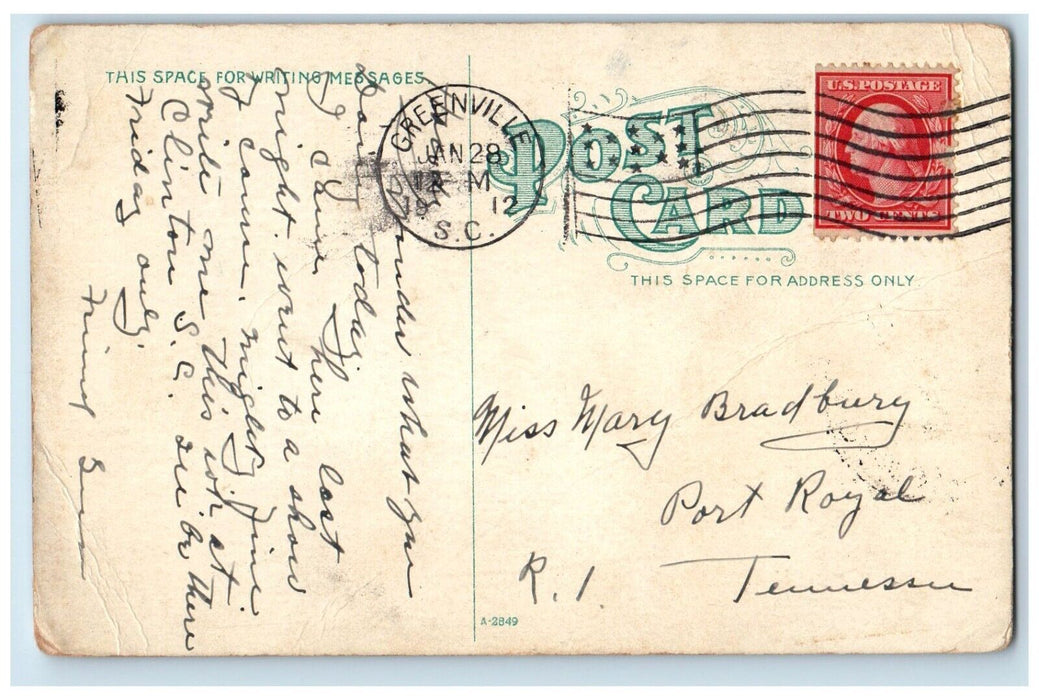 THIS SPACE FOR WRITING MESSAGES
GREENVILLE
JAN 28
12 M
19 12
S.C.
POST
CARD
U.S. POSTAGE
TWO CENTS
THIS SPACE FOR ADDRESS ONLY.
wonder what you
today.
I came here last
night. went to a show
I came. mighty fine
write me this wk at
Clinton S.C. Will be there
Friday only.
Friend
Miss Mary Bradbury
Port Royal
R. 1. Tennessee
A-2849